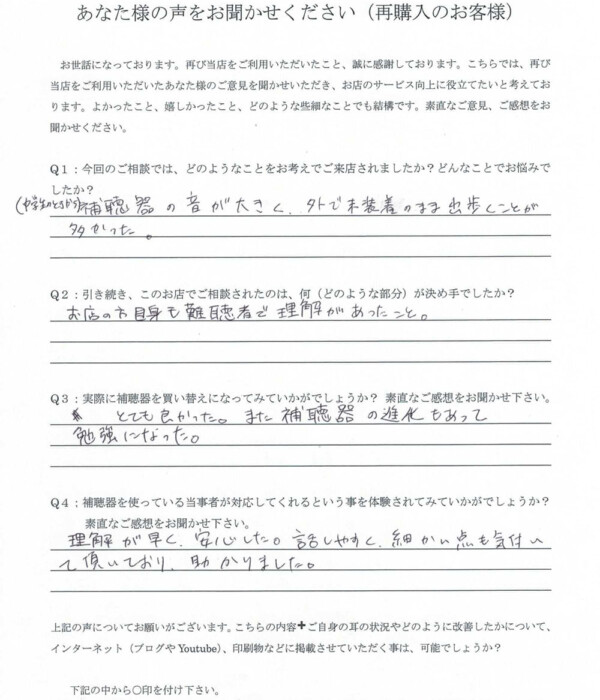 あなた様の声をお聞かせください（再購入のお客様）
お世話になっております。再び当店をご利用いただいたこと、誠に感謝しております。こちらでは、再び
当店をご利用いただいたあなた様のご意見を聞かせいただき、お店のサービス向上に役立てたいと考えてお
ります。よかったこと、嬉しかったこと、どのような些細なことでも結構です。素直なご意見、ご感想をお
聞かせください。
Q1：今回のご相談では、どのようなことをお考えでご来店されましたか？どんなことでお悩みで
したか？
(中学生のときから)補聴器の音が大きく、外で未装着のまま出歩くことが
多かった。
Q2：引き続き、このお店でご相談されたのは、何（どのような部分）が決め手でしたか？
お店の方自身も難聴者で理解があったこと。
Q3：実際に補聴器を買い替えになってみていかがでしょうか？ 素直なご感想をお聞かせ下さい。
とても良かった。また補聴器の進化もあって
勉強になった。
Q4：補聴器を使っている当事者が対応してくれるという事を体験されてみていかがでしょうか？
素直なご感想をお聞かせ下さい。
理解が早く、安心した。話しやすく、細かい点も気付い
て頂いており、助かりました。
上記の声についてお願いがございます。こちらの内容+ご自身の耳の状況やどのように改善したかについて、
インターネット（ブログや Youtube）、印刷物などに掲載させていただく事は、可能でしょうか？
下記の中から〇印を付け下さい。